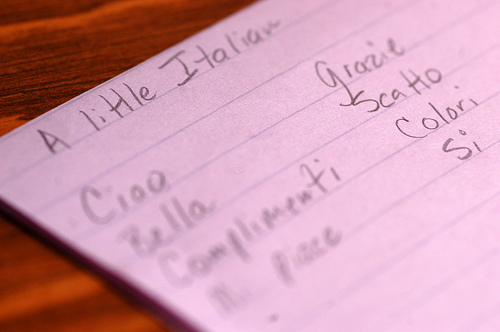 A little Italian
Ciao
Bella
Complimenti
Mi piace
Grazie
Scatto
Colori
Si